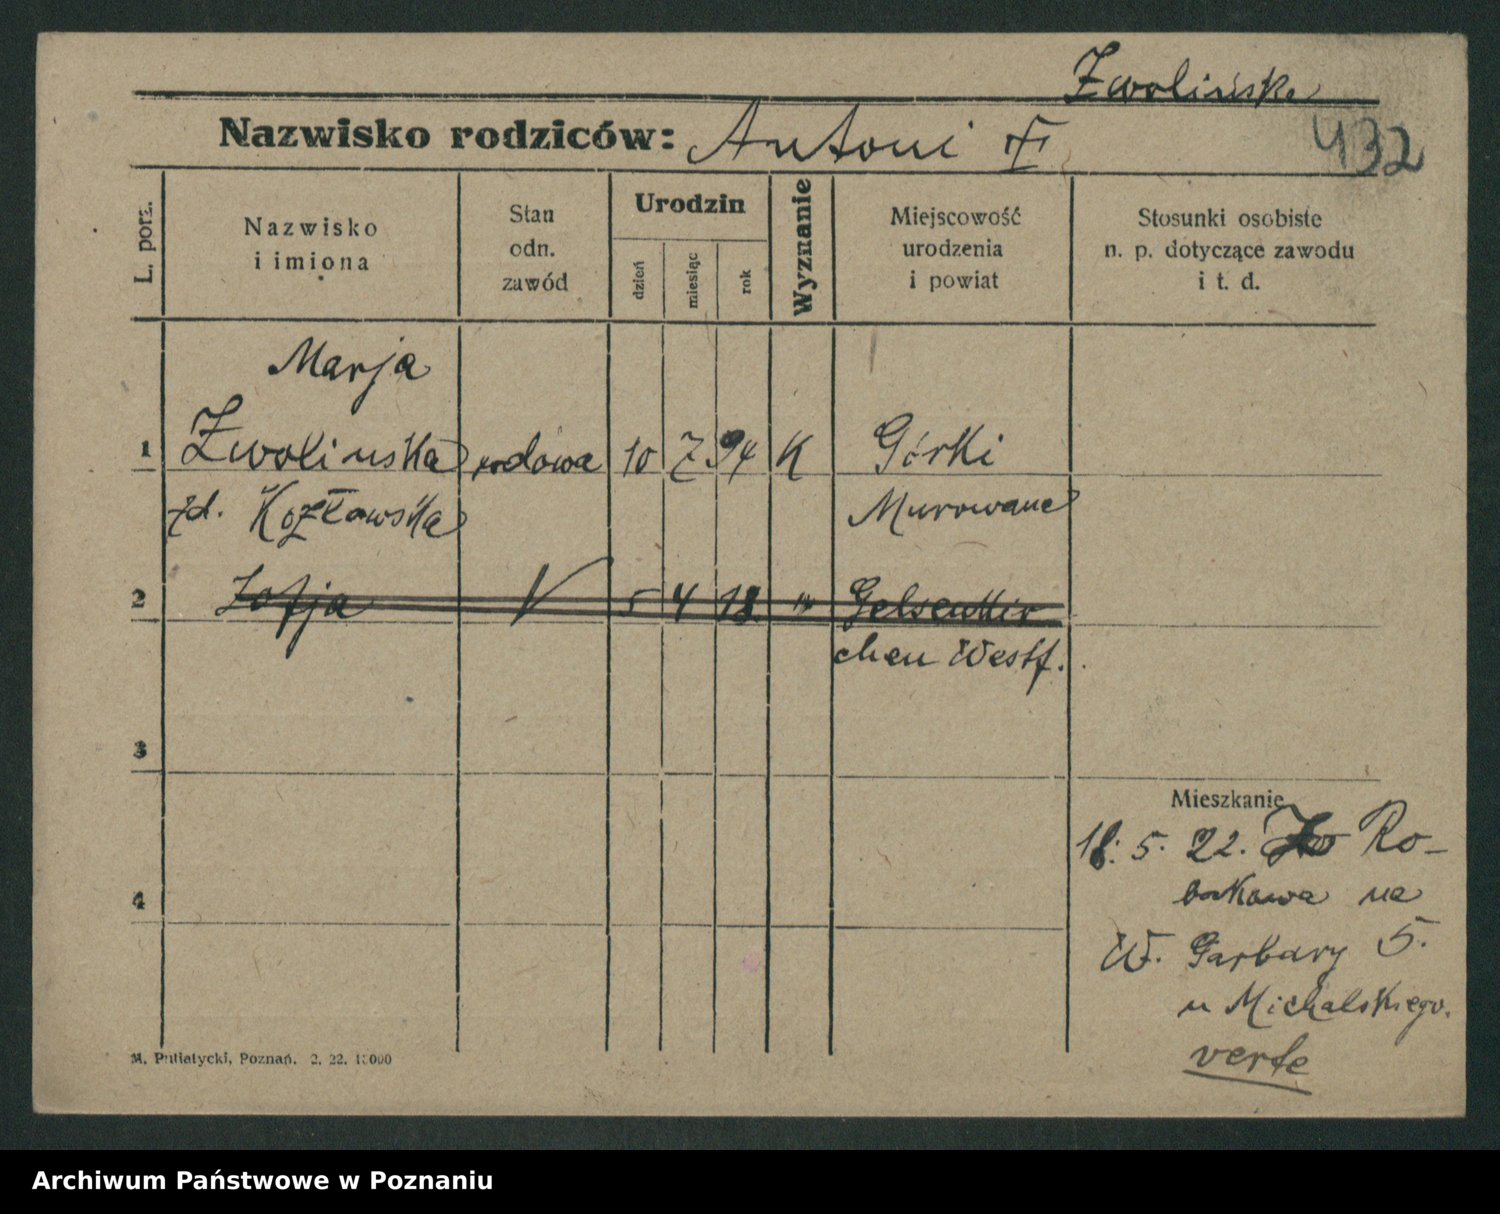 Zwolińska
Nazwisko rodziców: Antoni
432
L. porz.
Nazwisko
i imiona
Stan
odn.
zawód
Urodzin
dzień
miesiąc
rok
Wyznanie
Miejscowość
urodzenia
i powiat
Stosunki osobiste
n. p. dotyczące zawodu
i t. d.
Marja
1 Zwolinska wdowa 10 7 94 K Górki
zd. Kozłowska Murowane
2 Zofja 5 4 18 " Gelsenkir
chen Westf.
3
Mieszkanie
18. 5. 22. Ro-
bakowa na
4
W. Garbary 5.
u Michalskiego.
verte
M. Putiatycki, Poznań. 2. 22. 15000
Archiwum Państwowe w Poznaniu